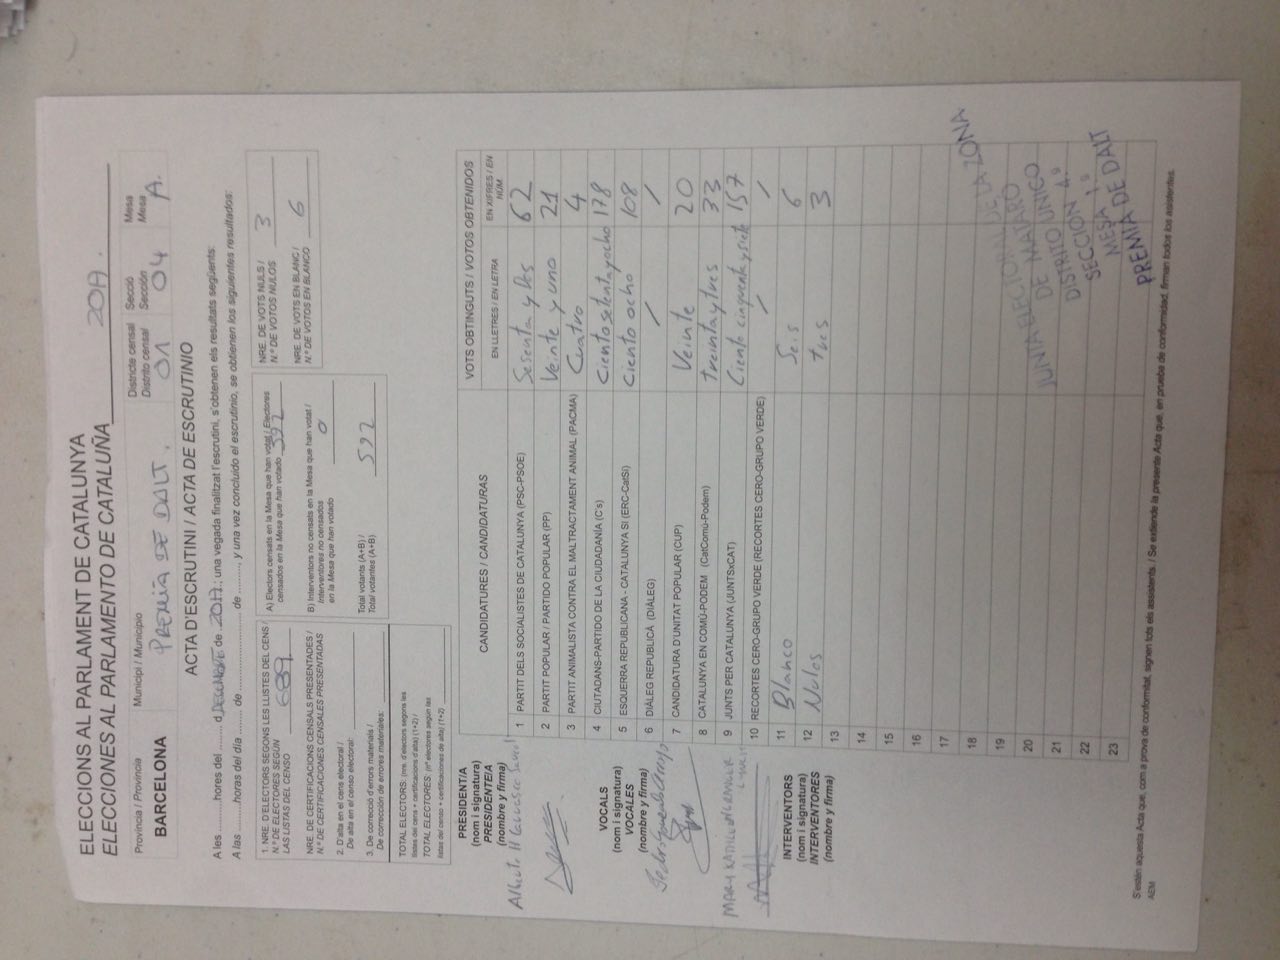 ELECCIONS AL PARLAMENT DE CATALUNYA
ELECCIONES AL PARLAMENTO DE CATALUÑA 2017.
Província / Provincia
BARCELONA
Municipi / Municipio
PREMIÀ DE DALT.
Districte censal
Distrito censal
01
Secció
Sección
04
Mesa
Mesa
A.
ACTA D'ESCRUTINI / ACTA DE ESCRUTINIO
A les ........hores del ........ d DECEMBRE de 2017; una vegada finalitzat l'escrutini, s'obtenen els resultats següents:
A las ........horas del día ........ de ........................ de ........, y una vez concluido el escrutinio, se obtienen los siguientes resultados:
1. NRE. D'ELECTORS SEGONS LES LLISTES DEL CENS /
N.º DE ELECTORES SEGÚN
LAS LISTAS DEL CENSO
689
NRE. DE CERTIFICACIONS CENSALS PRESENTADES /
N.º DE CERTIFICACIONES CENSALES PRESENTADAS
2. D'alta en el cens electoral /
De alta en el censo electoral:
3. De correcció d'errors materials /
De corrección de errores materiales:
TOTAL ELECTORS: (nre. d'electors segons les
llistes del cens + certificacions d'alta) (1+2) /
TOTAL ELECTORES: (nº electores según las
listas del censo + certificaciones de alta) (1+2)
A) Electors censats en la Mesa que han votat / Electores
censados en la Mesa que han votado 592
B) Interventors no censats en la Mesa que han votat /
Interventores no censados
en la Mesa que han votado
0
Total votants (A+B) /
Total votantes (A+B)
592
NRE. DE VOTS NULS /
N.º DE VOTOS NULOS
3
NRE. DE VOTS EN BLANC /
N.º DE VOTOS EN BLANCO
6
PRESIDENT/A
(nom i signatura)
PRESIDENTE/A
(nombre y firma)
VOCALS
(nom i signatura)
VOCALES
(nombre y firma)
INTERVENTORS
(nom i signatura)
INTERVENTORES
(nombre y firma)
CANDIDATURES / CANDIDATURAS
VOTS OBTINGUTS / VOTOS OBTENIDOS
EN LLETRES / EN LETRA
EN XIFRES / EN NÚM.
1 PARTIT DELS SOCIALISTES DE CATALUNYA (PSC-PSOE) Sesenta y Dos 62
2 PARTIT POPULAR / PARTIDO POPULAR (PP) Veinte y uno 21
3 PARTIT ANIMALISTA CONTRA EL MALTRACTAMENT ANIMAL (PACMA) Cuatro 4
4 CIUTADANS-PARTIDO DE LA CIUDADANÍA (C's) Ciento setenta y ocho 178
5 ESQUERRA REPUBLICANA - CATALUNYA SÍ (ERC-CatSí) Ciento ocho 108
6 DIÀLEG REPUBLICÀ (DIÀLEG) / /
7 CANDIDATURA D'UNITAT POPULAR (CUP) Veinte 20
8 CATALUNYA EN COMÚ-PODEM (CatComú-Podem) treinta y tres 33
9 JUNTS PER CATALUNYA (JUNTSxCAT) Ciento cinquenta y siete 157
10 RECORTES CERO-GRUPO VERDE (RECORTES CERO-GRUPO VERDE) / /
11 Blanco Seis 6
12 Nulos tres 3
13
14
15
16
17
18
19
20
21
22
23
JUNTA ELECTORAL DE LA ZONA
DE MATARÓ
DISTRITO UNICO
SECCION 4.ª
MESA 1.ª
PREMIA DE DALT
S'estén aquesta Acta que, com a prova de conformitat, signen tots els assistents. / Se extiende la presente Acta que, en prueba de conformidad, firman todos los asistentes.
AEM